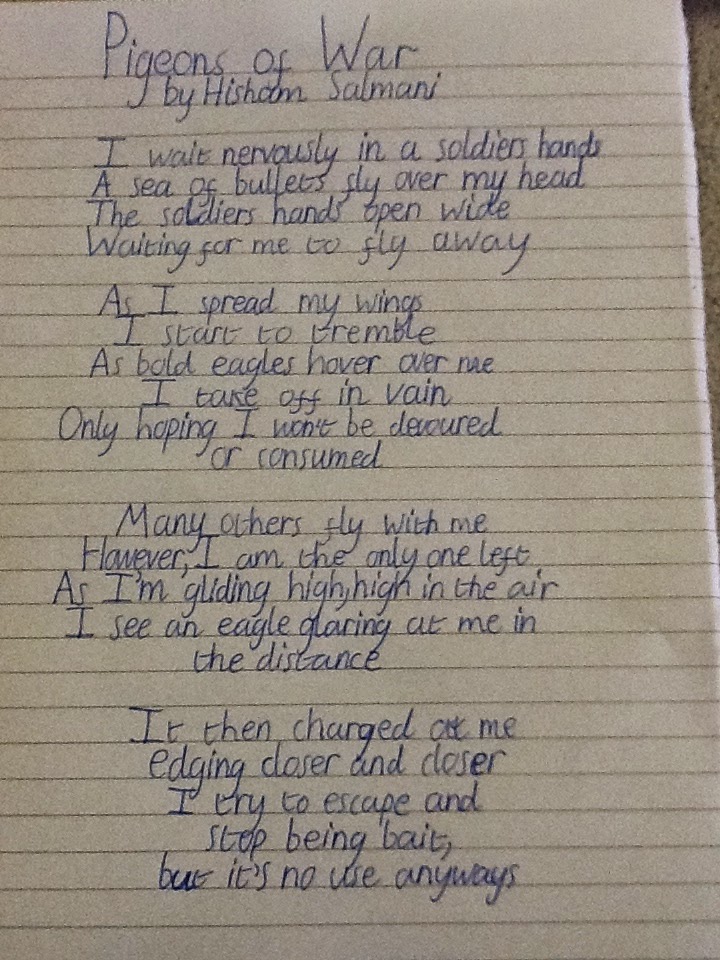 Pigeons of War
by Hishaam Salmani
I wait nervously in a soldiers hands
A sea of bullets fly over my head
The soldiers hands open wide
Waiting for me to fly away
As I spread my wings
I start to tremble
As bold eagles hover over me
I take off in vain
Only hoping I won't be devoured
or consumed
Many others fly with me
However, I am the only one left
As I'm gliding high, high in the air
I see an eagle glaring at me in
the distance
It then charged at me
edging closer and closer
I try to escape and
stop being bait,
but it's no use anyways